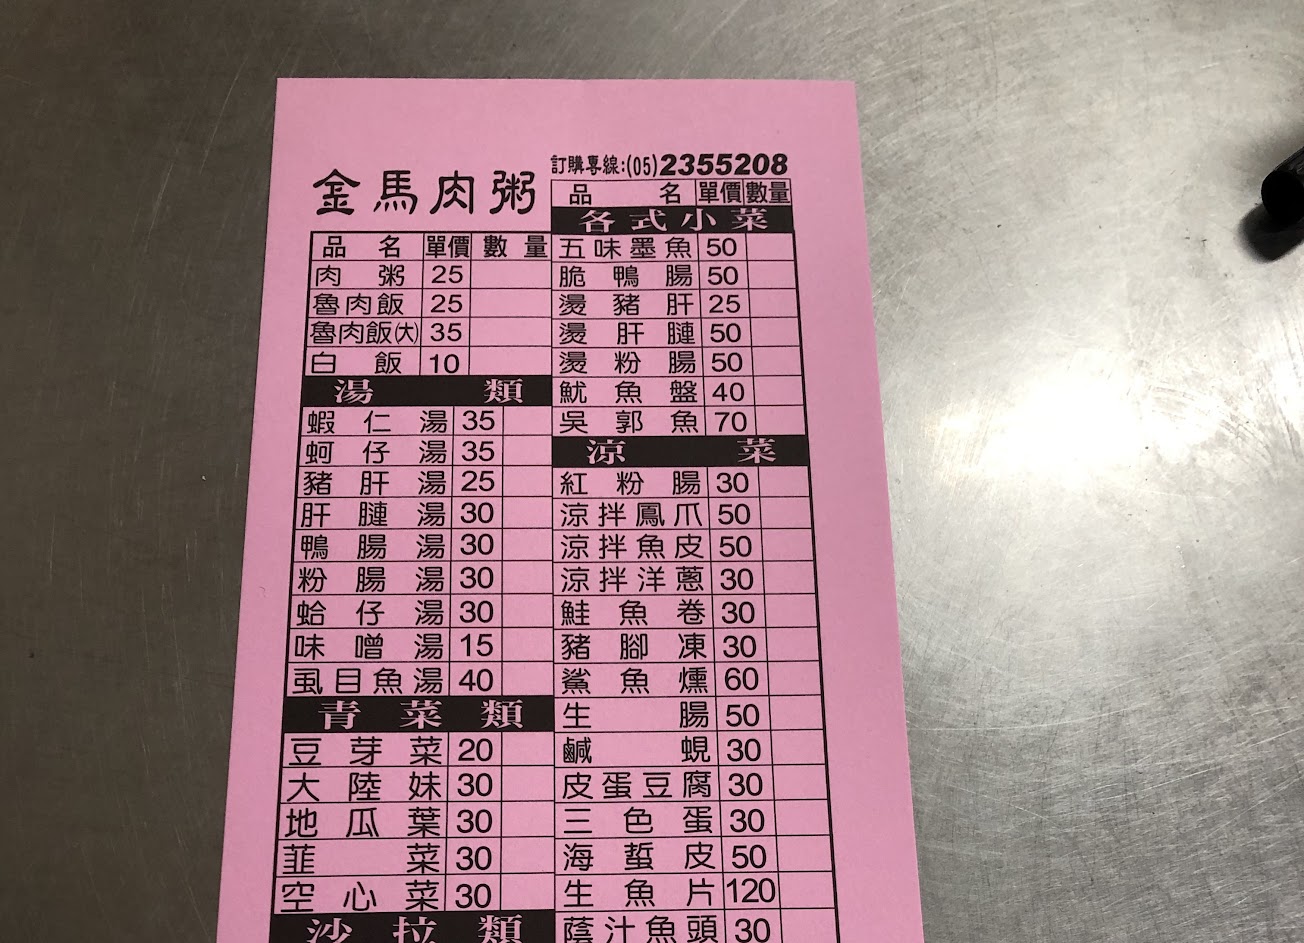 金馬肉粥
品名 單價 數量
肉粥 25
魯肉飯 25
魯肉飯(大) 35
白飯 10
湯類
蝦仁湯 35
蚵仔湯 35
豬肝湯 25
肝膇湯 30
鴨腸湯 30
粉腸湯 30
蛤仔湯 30
味噌湯 15
虱目魚湯 40
青菜類
豆芽菜 20
大陸妹 30
地瓜葉 30
韮菜 30
空心菜 30
沙拉類
訂購專線:(05)2355208
品名 單價 數量
各式小菜
五味墨魚 50
脆鴨腸 50
燙豬肝 25
燙肝膇 50
燙粉腸 50
魷魚盤 40
吳郭魚 70
涼菜
紅粉腸 30
涼拌鳳爪 50
涼拌魚皮 50
涼拌洋蔥 30
鮭魚卷 30
豬腳凍 30
鯊魚燻 60
生腸 50
鹹蜆 30
皮蛋豆腐 30
三色蛋 30
海蜇皮 50
生魚片 120
蔭汁魚頭 30